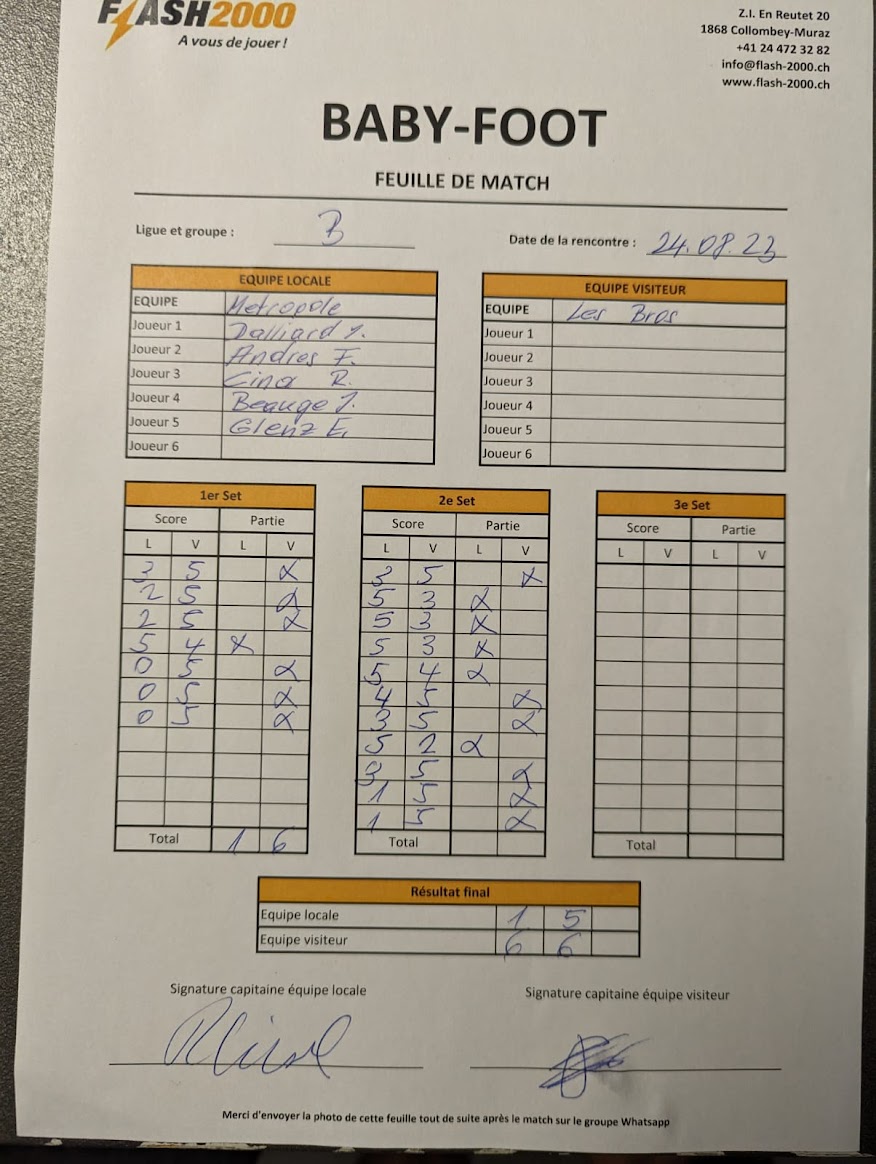 FLASH2000
A vous de jouer !
Z.I. En Reutet 20
1868 Collombey-Muraz
+41 24 472 32 82
info@flash-2000.ch
www.flash-2000.ch
BABY-FOOT
FEUILLE DE MATCH
Ligue et groupe : B
Date de la rencontre : 24.08.23
EQUIPE LOCALE
EQUIPE Metropole
Joueur 1 Dalliard J.
Joueur 2 Andres F.
Joueur 3 Cina R.
Joueur 4 Beauge J.
Joueur 5 Glenz E.
Joueur 6
EQUIPE VISITEUR
EQUIPE Les Bros
Joueur 1
Joueur 2
Joueur 3
Joueur 4
Joueur 5
Joueur 6
1er Set
Score Partie
L V L V
3 5 X
2 5 X
2 5 X
5 4 X
0 5 X
0 5 X
0 5 X
Total 1 6
2e Set
Score Partie
L V L V
3 5 X
5 3 X
5 3 X
5 3 X
5 4 X
4 5 X
3 5 X
5 2 X
3 5 X
1 5 X
1 5 X
Total
3e Set
Score Partie
L V L V
Total
Résultat final
Equipe locale 1 5
Equipe visiteur 6 6
Signature capitaine équipe locale
Signature capitaine équipe visiteur
Merci d'envoyer la photo de cette feuille tout de suite après le match sur le groupe Whatsapp